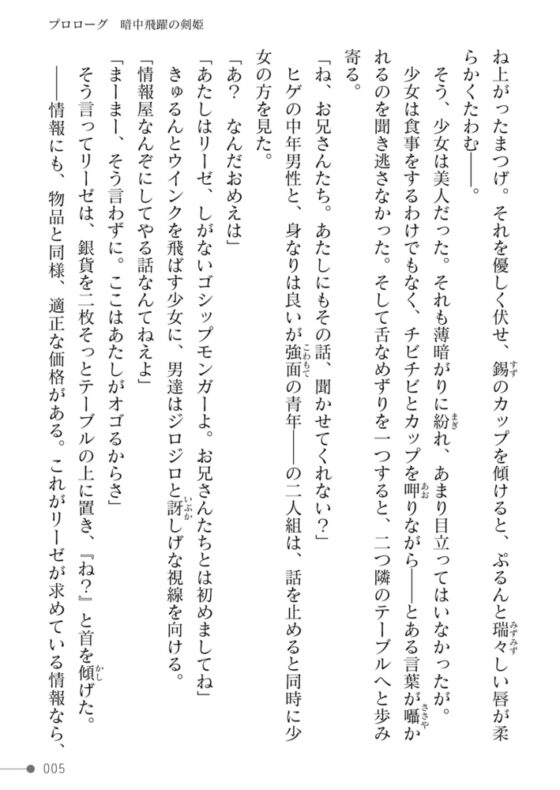 プロローグ　暗中飛躍の剣姫
ね上がったまつげ。それを優しく伏せ、錫のカップを傾けると、ぷるんと瑞々しい唇が柔
らかくたわむ――。
　そう、少女は美人だった。それも薄暗がりに紛れ、あまり目立ってはいなかったが。
　少女は食事をするわけでもなく、チビチビとカップを呷りながら――とある言葉が囁か
れるのを聞き逃さなかった。そして舌なめずりを一つすると、二つ隣のテーブルへと歩み
寄る。
「ね、お兄さんたち。あたしにもその話、聞かせてくれない？」
　ヒゲの中年男性と、身なりは良いが強面の青年――の二人組は、話を止めると同時に少
女の方を見た。
「あ？　なんだおめえは」
「あたしはリーゼ、しがないゴシップモンガーよ。お兄さんたちとは初めましてね」
　きゅるんとウインクを飛ばす少女に、男達はジロジロと訝しげな視線を向ける。
「情報屋なんぞにしてやる話なんてねえよ」
「まーまー、そう言わずに。ここはあたしがオゴるからさ」
　そう言ってリーゼは、銀貨を二枚そっとテーブルの上に置き、『ね？』と首を傾げた。
　――情報にも、物品と同様、適正な価格がある。これがリーゼが求めている情報なら、
005